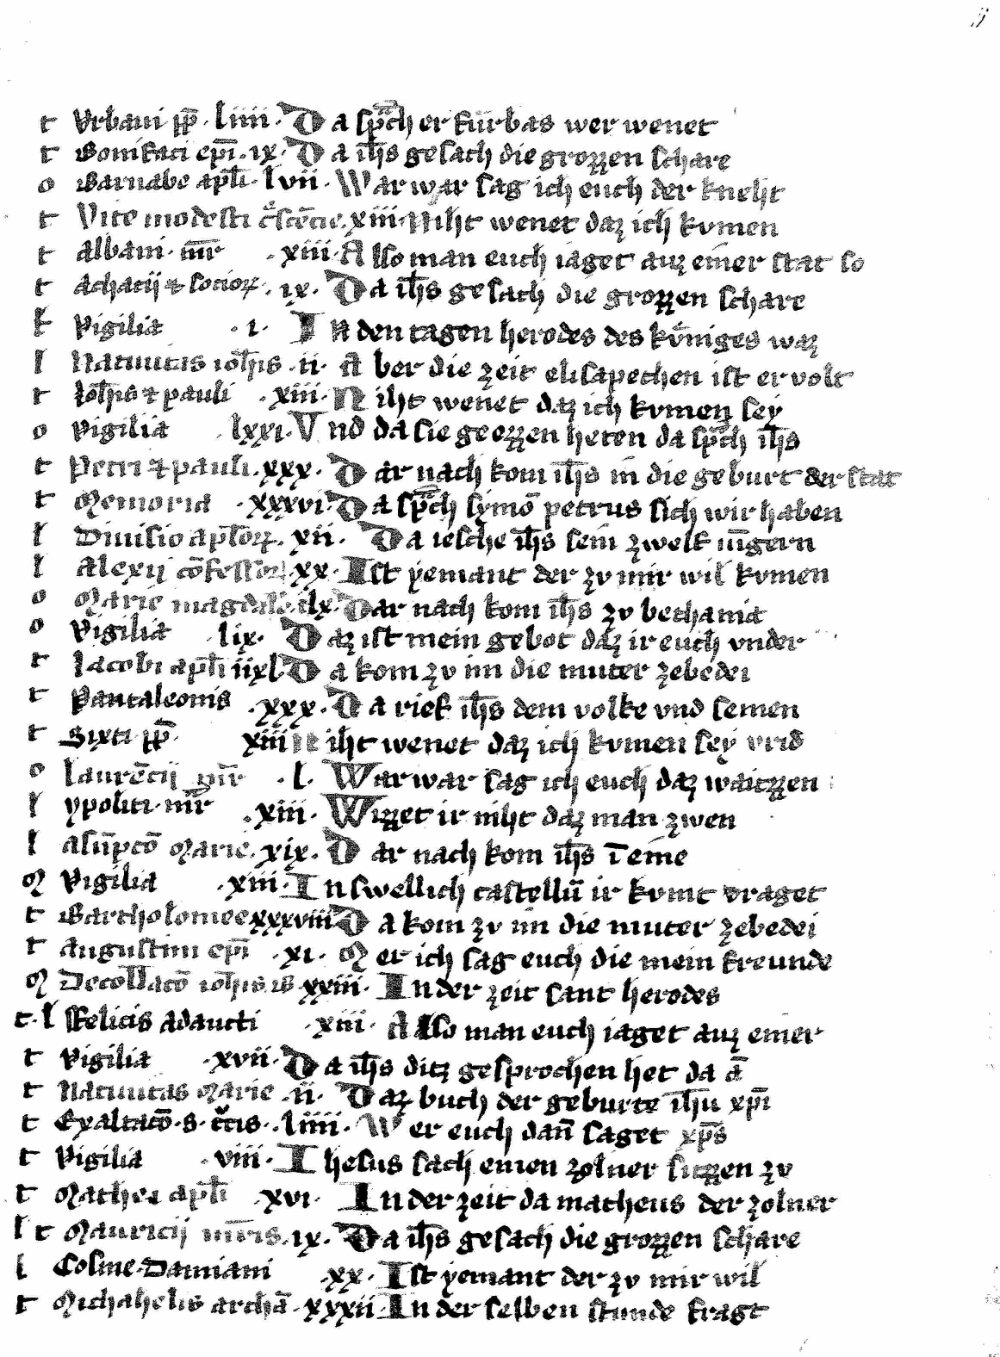 ij
t Vrbani pp̄ · liiii · Da sp̄ch er fu̍rbas wer wenet
t Bonifaci ep̄i · ix · Da ih̄s gesach die grozzen schare
o Barnabe apl̄i · lvii · War war sag ich euch der kneht
t Vite modesti c̄scēcie · xiii · Niht wenet daz ich kvmen
t Albani · mr̄ · xiii · Also man euch iaget auz einer stat so
t Achacij ⁊ socioꝝ · ix · Da ih̄s gesach die grozzen schare
f Vigilia · i · In den tagen herodes des kv̍niges waz
l Natiuitas ioh̄is · ii · Aber die zeit elisapethen ist er volt
t Joh̄is ⁊ pauli · xiii · Niht wenet daz ich kvmen sey
o Vigilia lxxi · Vnd da sie geezzen heten da sp̄ch ih̄s
t Petri ⁊ pauli · xxx · Dar nach kom ih̄s in die geburt der stat
t Memoria · xxxvi · Da sp̄ch symō petrus sich wir haben
l Diuisio apl̄oꝝ · xii · Da iesche ih̄s sein zwelf iūgern
l Alexij cōfessor · xx · Ist yemant der zv mir wil kvmen
o Marie magdal · lx · Dar nach kom ih̄s zv bethania
o Vigilia lix · Daz ist mein gebot daz ir euch vnder
t Jacobi apl̄i iixl Da kom zv im die muter zebedei
t Pantaleonis · xxx · Da rief ih̄s dem volke vnd seinen
t Sixti pp̄ · xiii Niht wenet daz ich kvmen sey vnd
o Laurēcij mr̄ · l · War war sag ich euch daz waitzzen
l ypoliti · mr̄ · xiii · Wizzet ir niht daz man zwen
l Asūpcō Marie · xix · Dar nach kom ih̄s ī eine
M Vigilia · xiii · In swellich castellū ir kvmt vraget
t Bartholomee xxxviii Da kom zv im die muter zebedei
t Augustini ep̄i · xi · Mer ich sag euch die mein freunde
M Decollacō ioh̄is · xxiii · In der zeit sant herodes
t · l Felicis Adaucti · xiii · Also man euch iaget auz einer
t Vigilia · xvii · Da ih̄s ditz gesprochen het da
t Natiuitas Marie · ii · Daz buch der geburte ih̄u xp̄i
t Exaltacō · s · c̄cis · liiii · Wer euch dan̄ saget xp̄s
t Vigilia · viii · Ihesus sach einen zolner sitzzen zv
t Mathei apl̄i · xvi · In der zeit da matheus der zolner
l t Mauricij mr̄is · ix · Da ih̄s gesach die grozzen schare
l Cosme · Damiani · xx · Ist yemant der zv mir wil
t Michahelis archā · xxxii · In der selben stunde fragt